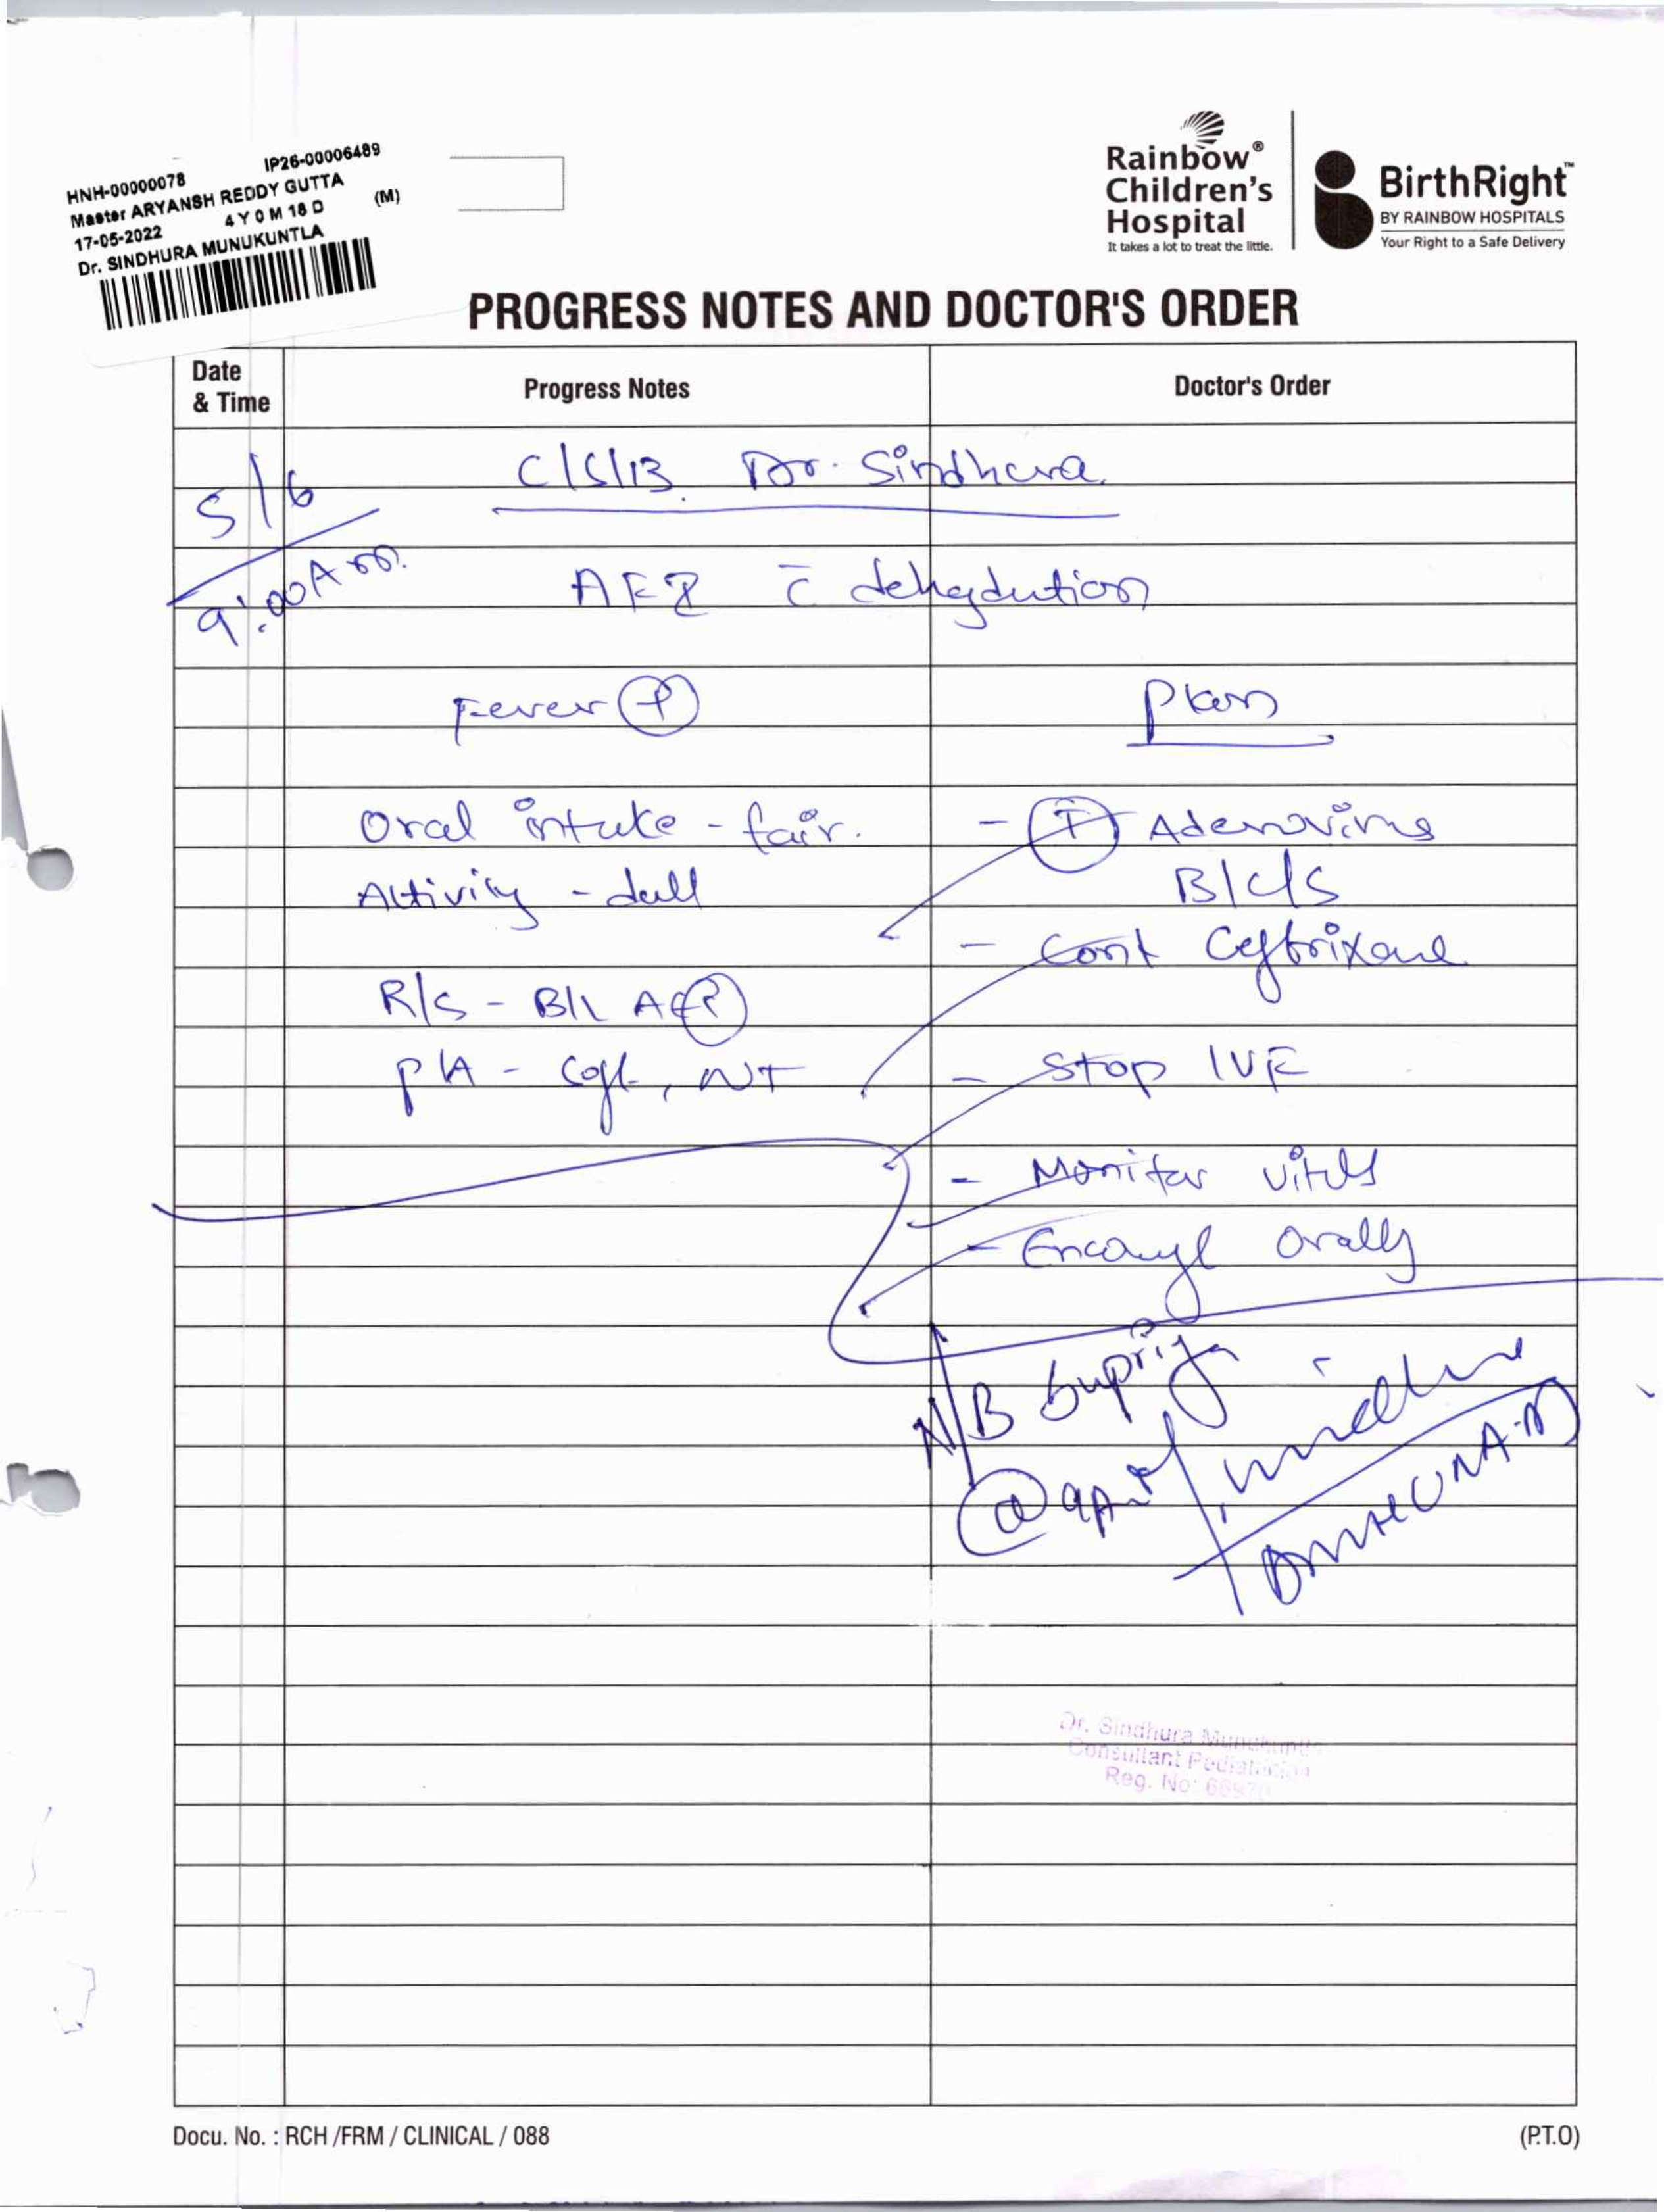 HNH-00000078 IP26-00006489
Master ARYANSH REDDY GUTTA
17-05-2022 4 Y 0 M 18 D (M)
Dr. SINDHURA MUNUKUNTLA
Rainbow®
Children's
Hospital
It takes a lot to treat the little.
BirthRight™
BY RAINBOW HOSPITALS
Your Right to a Safe Delivery
PROGRESS NOTES AND DOCTOR'S ORDER
Date & Time
Progress Notes
Doctor's Order
5/6
9:00 Am.
C/S/B Dr. Sindhura
AFI c̄ dehydution
Fever (+)
Oral intake - fair.
Activity - dull
R/S - B/L AE(+)
P/A - soft, NT
Plan
- (T) Adenovirus
B/C/S
- Cont Ceftrixone
- Stop IVF
- Monitor vitals
- Encourge Orally
N/B Supriya
@ 9Am
Dr. Sindhura Munukuntla
Consultant Pediatrician
Reg. No:
Docu. No. : RCH /FRM / CLINICAL / 088
(P.T.O)